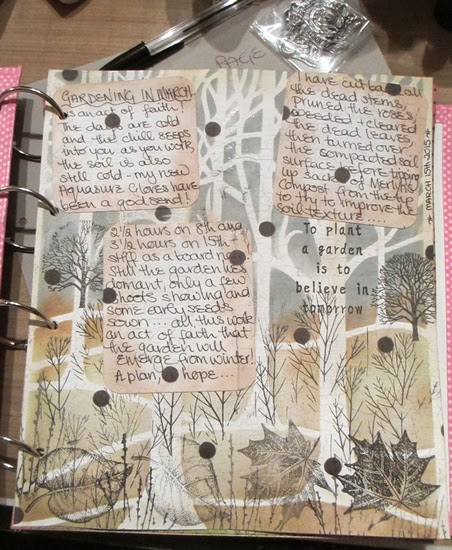 GARDENING IN MARCH
is an act of faith!
The days are cold
and the chill seeps
into you as you work,
the soil is also
still cold - my new
Aquasure Gloves have
been a godsend!
I have cut back all
the dead stems,
pruned the roses,
weeded & cleared
the dead leaves,
then turned over
the compacted soil
surface before tipping
up sacks of Merlin's
Compost from the tip
to try to improve the
soil texture....
* MARCH 15th 2015 *
2 1/2 hours on 8th and
3 1/2 hours on 15th -
stiff as a board now!
Still the garden lies
dormant, only a few
shoots showing and
some early seeds
sown.... all this work
an act of faith that
the garden will
emerge from winter!
A plan, a hope....
To plant
a garden
is to
believe in
tomorrow